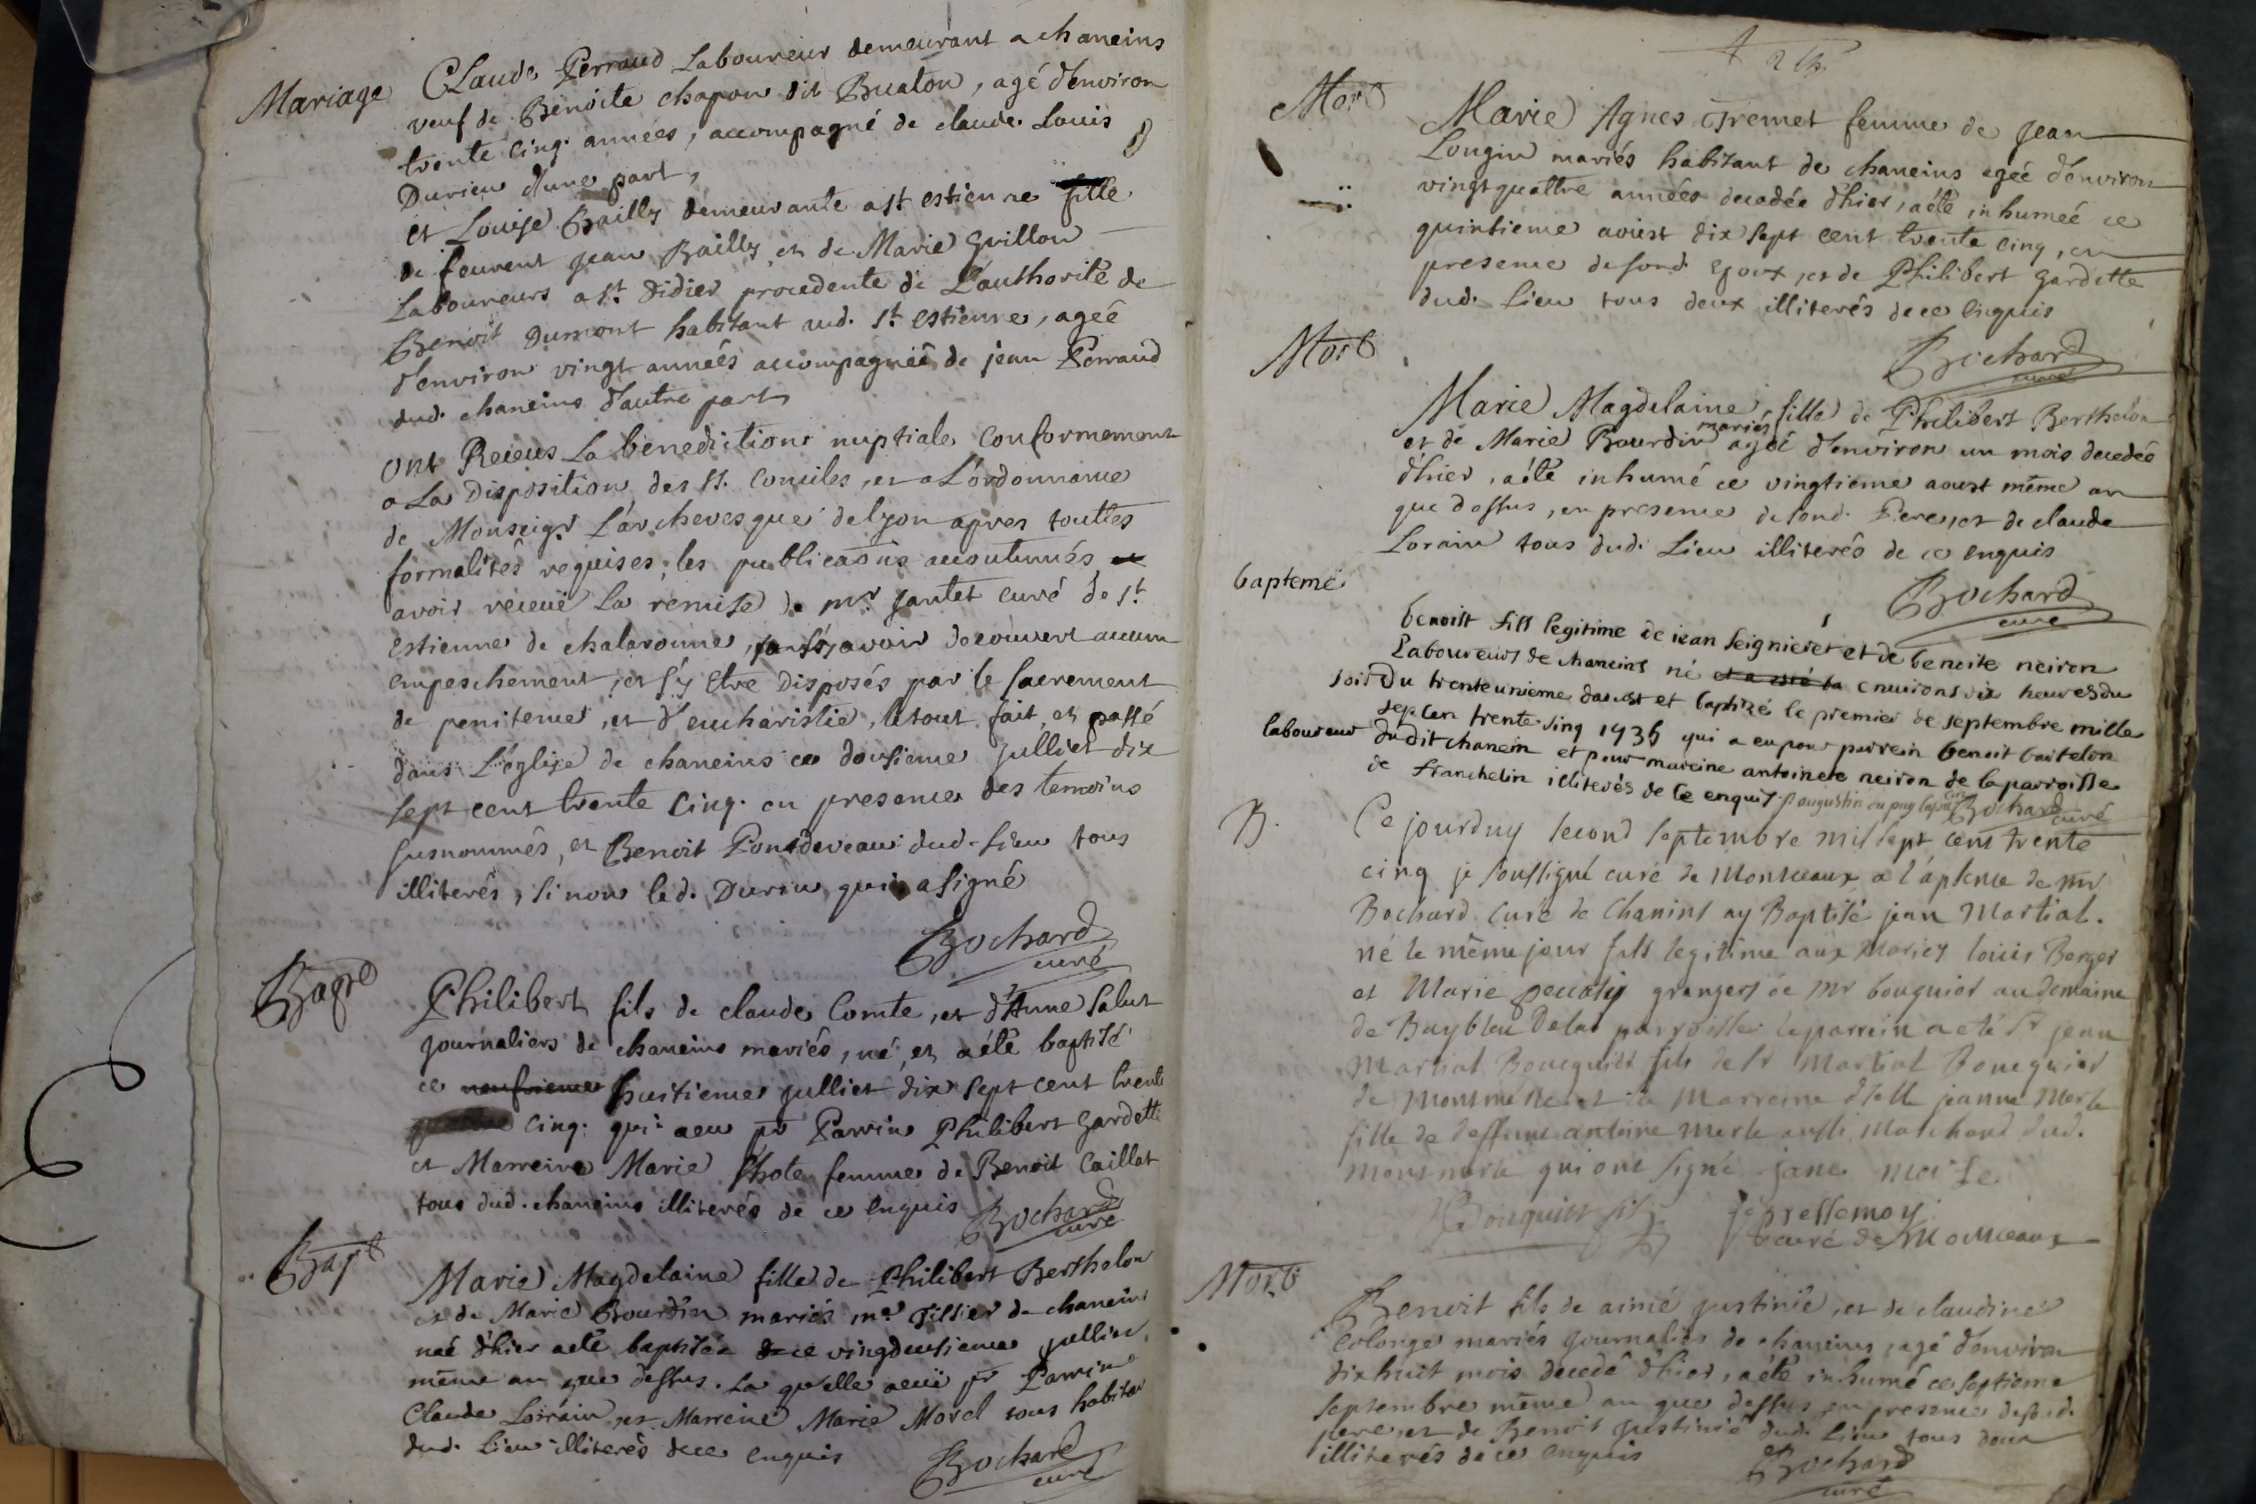 Mariage
Claude Perraud Laboureur demeurant a chaneins
veuf de Benoite chapon dit Bualon, agé d'environ
trente cinq. années, accompagné de claude Louis
Durieu d'une part,
et Louise Bailly demeurante a st estienne fille
de feurent jean Bailly et de Marie Guillon
Laboureurs a st. didier procedente de L'authorité de
Benoit Dumont habitant aud. st. estienne, ageé
d'environ vingt années accompagneé de jean Perraud
dud. chaneins d'autre part
ont Receus La benediction nuptiale conformement
a La Disposition des ss. conciles, et a L'ordonnance
de Monseigr. L'archevesque de lyon apres touttes
formalités requises; les publicaons accoutumés
avoir receue La remise de mr. jantet curé de st.
estienne de chalaronne, sans avoir decouvert aucun
empeschement, et s'y etre Disposés par le sacrement
de penitence, et d'eucharistie, le tout fait, et passé
dans L'eglise de chaneins ce dousieme julliet dix
sept cent trente cinq. en presence des temoins
susnommés, et Benoit Pontdeveau dud. Lieu tous
illiterés, sinon led. Durieu qui a signé
Bochard
curé
Bapt
Philibert fils de claude Comte, et d'Anne Salut
journaliers de chaneins mariés, né, et a été baptisé
ce neufvieme huitieme julliet dix sept cent trente
cinq. qui a eu pr Parrin Philibert Gardette
et Marreine Marie Lhote femme de Benoit Caillat
tous dud. chaneins illiterés de ce enquis
Bochard
curé
Bapt
Marie Magdelaine fille de Philibert Berthelon
et de Marie Bourdin mariés me Tissier de chaneins
neé d'hier a eté baptisée de ce vingdeusieme julliet,
même an que dessus. La qu'elle a eue pr Parrin
Claude Lorain, et Marreine Marie Morel tous habitan
dud. Lieu illiterés de ce enquis
Bochard
curé
Mort
Marie Agnes Tremet femme de jean
Longin mariés habitant de chaneins ageé d'environ
vingt quattre années decedée d'hier, a été inhumeé ce
quinsieme aoust dix sept cent trente cinq, en
presence de sond. epoux, et de Philibert Gardette
dud. Lieu tous deux illiterés de ce enquis
Bochard
curé
Mort
Marie Magdelaine, fille de Philibert Berthelon
mariés
et de Marie Bourdin ageé d'environ un mois decedeé
d'hier, a été inhumé ce vingtieme aoust même an
que dessus, en presence de sond. Pere, et de claude
Lorain tous dud. Lieu illiterés de ce enquis
Bochard
curé
bapteme
benoist fils legitime de iean seignieret et de benoite neiron
Laboureurs de chaneins né et a esté ba environs dix heures du
soir Du trente unieme daoust et baptisé le premier de septembre mille
sep cen trente sinq 1735 qui a eu pour parrein benoit bartelon
laboureur du dit chanein et pour mareine antoinete neiron de la parroisse
de franchelin illiterés de ce enquis
Bochard
curé
B.
Ce jourduy second septembre mil sept cens trente
cinq je soussigné curé de Montceaux a l'absence de mr
Bochard curé de Chanins ay Baptisé jean Martial.
né le même jour fils legitime aux Mariez louis Berger
et Marie grangers de mr bouquier au domaine
de la parroisse. le parrein a eté sr jean
Martial Bouquier fils de sr Martial Bouquier
de et la Marreine delle jeanne Merle
fille de deffunt antoine Merle aussi Marchand dud.
qui ont signé jane merle
Bouquier fils
curé de Montceaux
Mort
Benoit fils de aimé justinié, et de claudine
Colonge mariés journaliers de chaneins, agé d'environ
dixhuit mois decedé d'hier, a été inhumé ce septieme
septembre même an que dessus en presence de sond.
pere, et de Benoit justinié dud. Lieu tous deux
illiterés de ce enquis
Bochard
curé